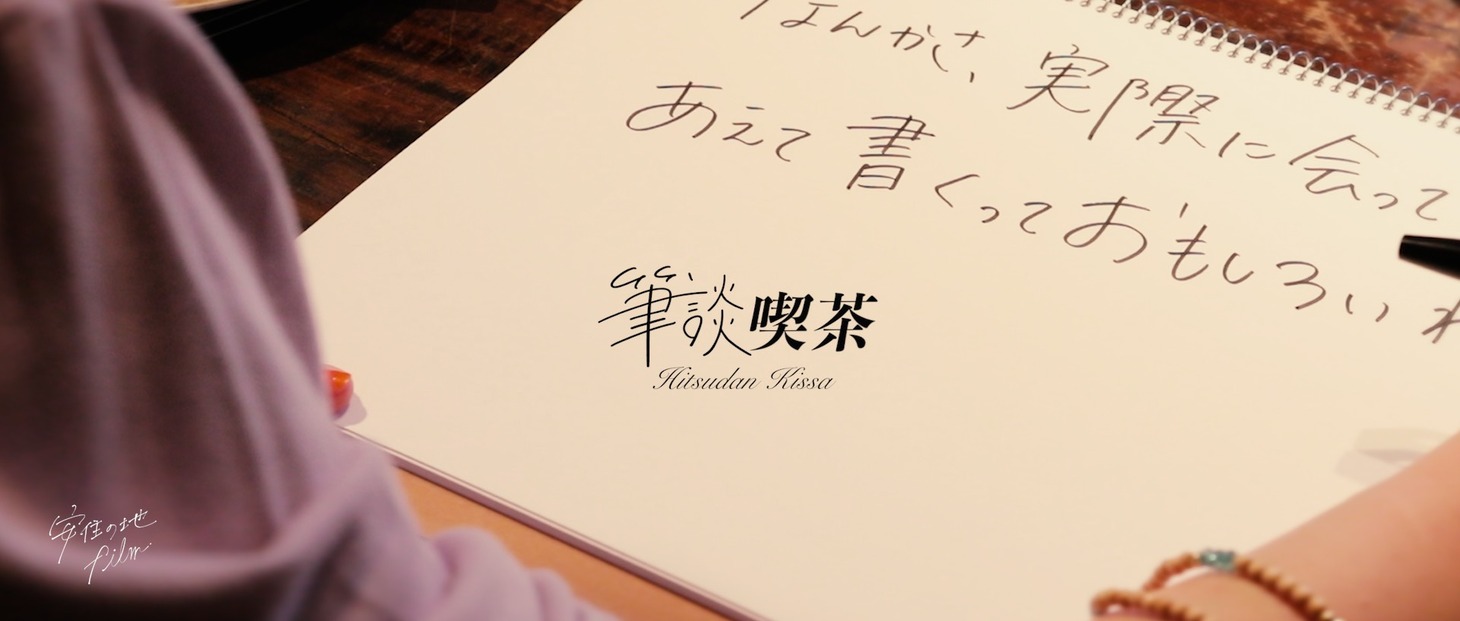 なんかさ、実際に会って
あえて書くっておもしろい
筆談喫茶
Hitsudan Kissa
安住の地
film